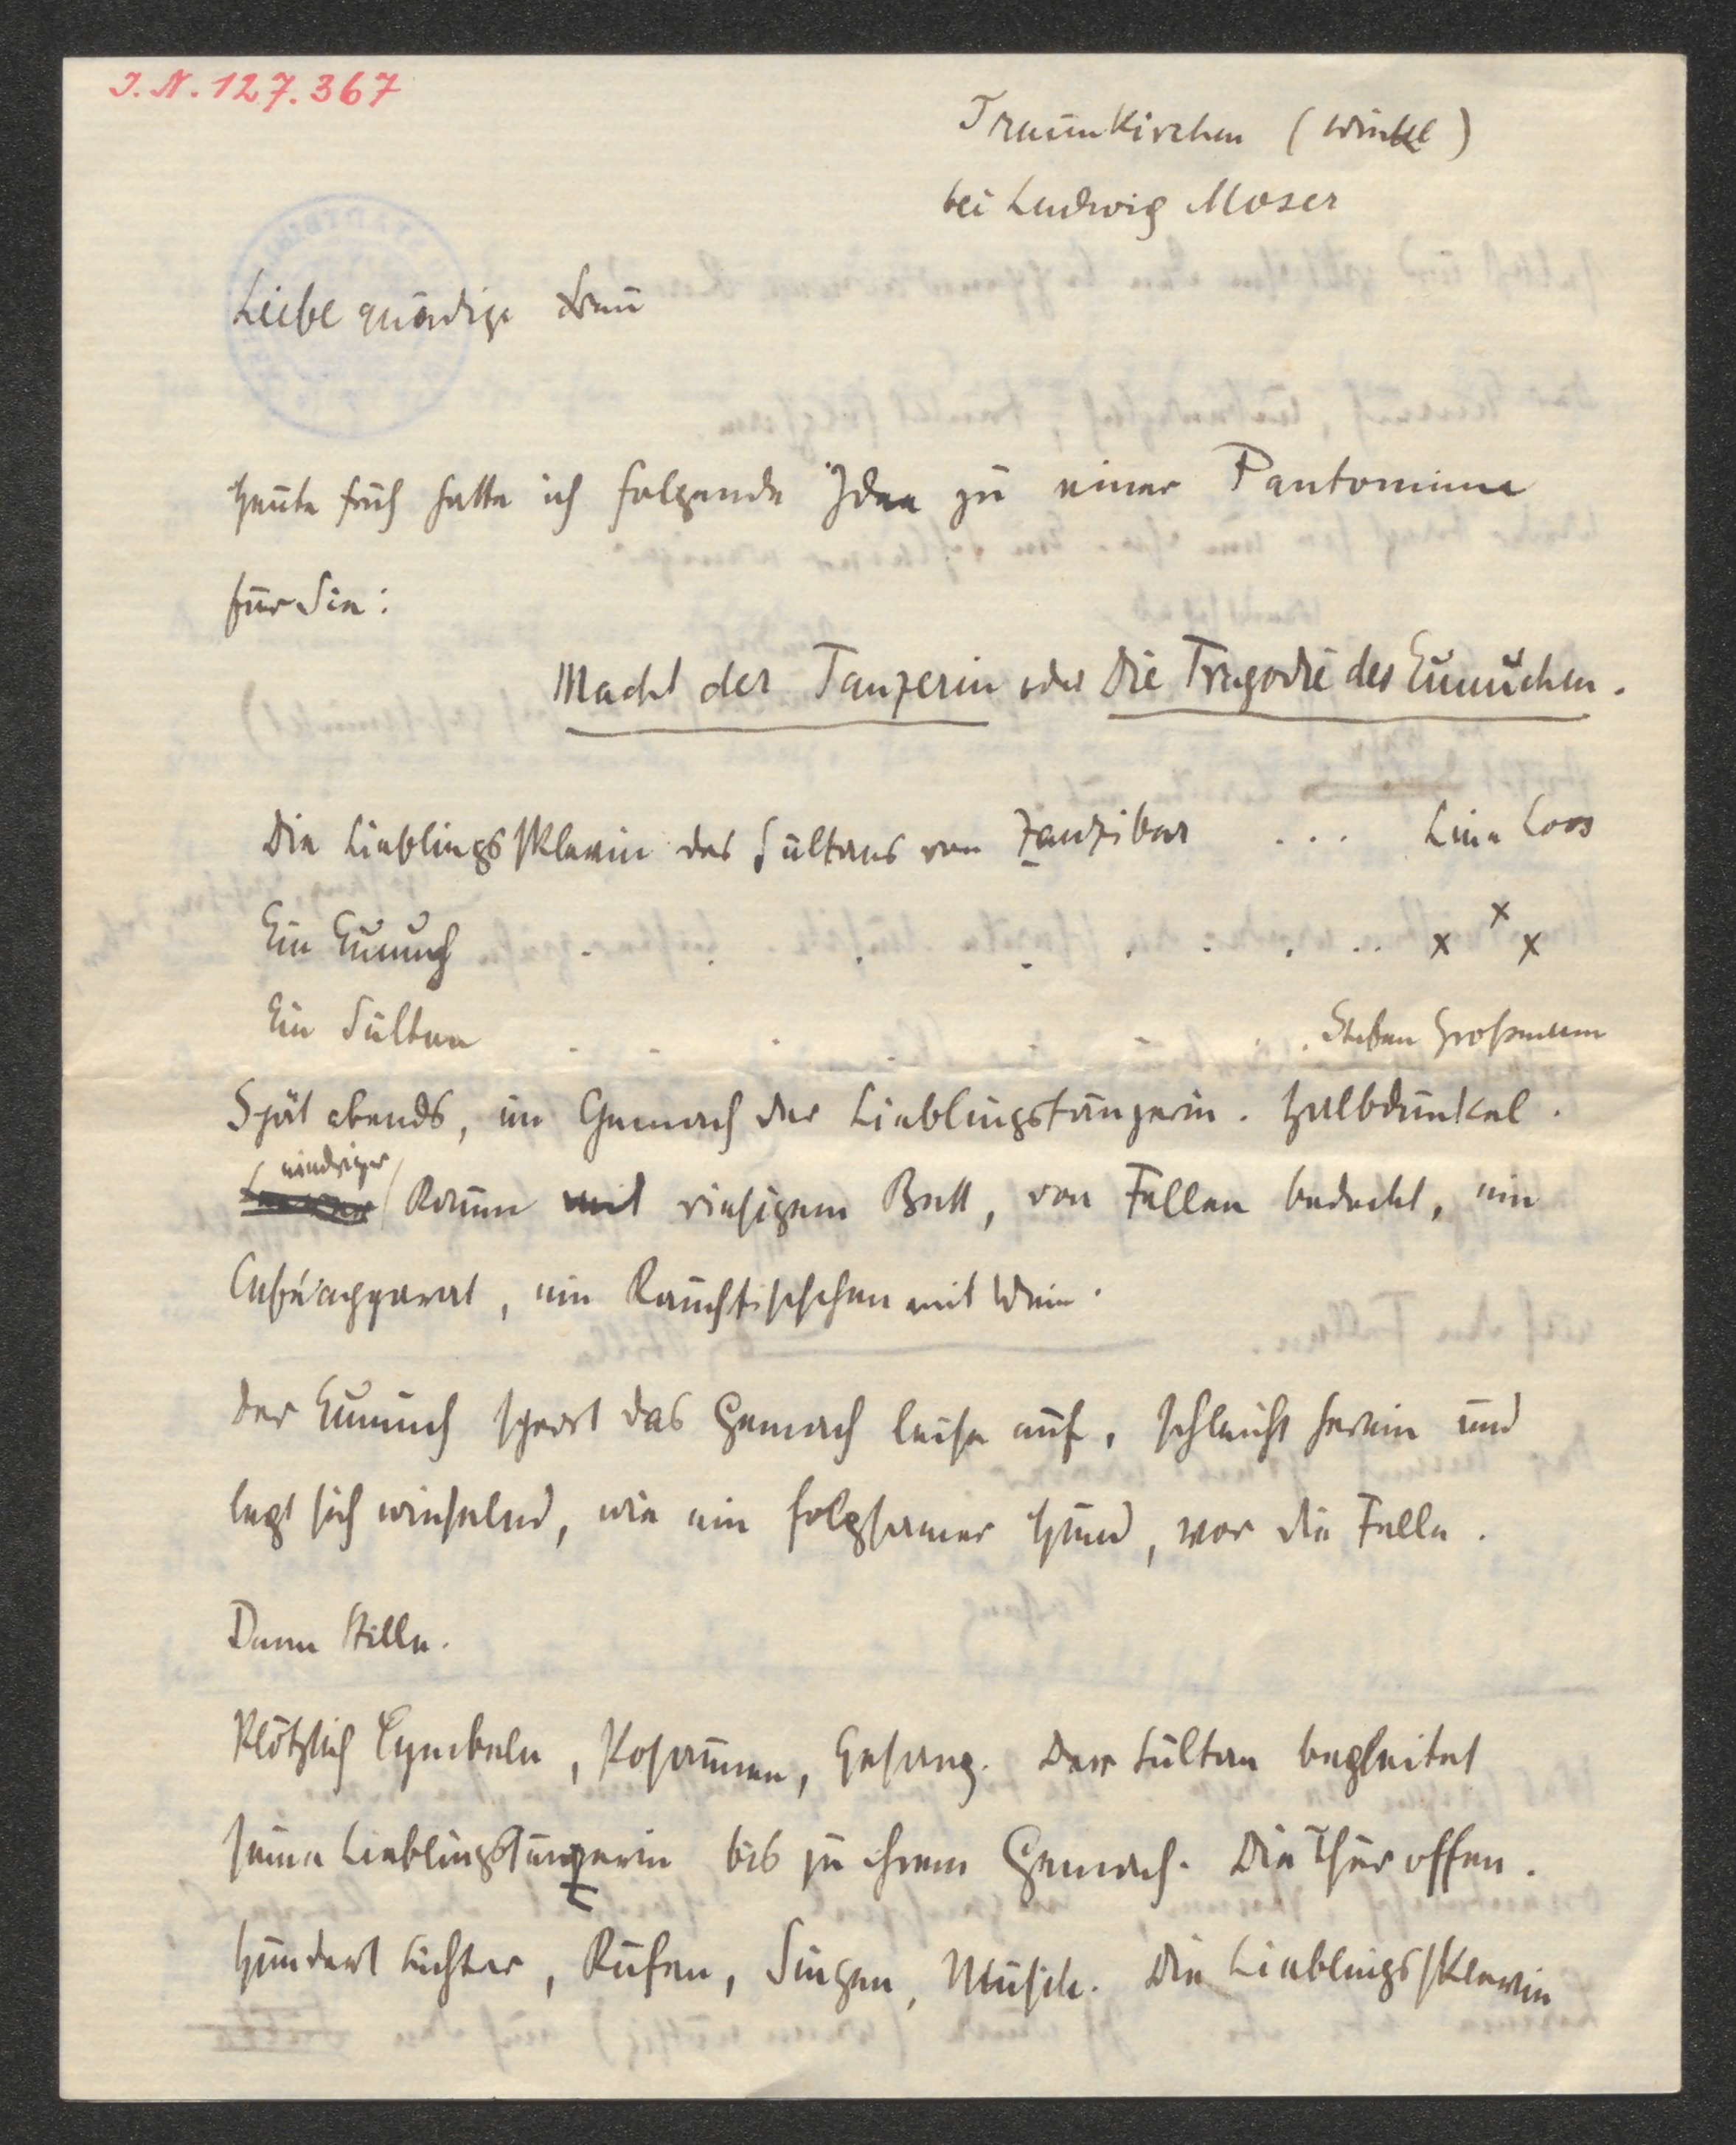 J. N. 127.367
Traunkirchen (Winkl)
bei Ludwig Moser
Liebe gnädige Frau
heute früh hatte ich folgende Idee zu einer Pantomime
für Sie:
Macht der Tänzerin oder Die Tragödie des Eunuchen.
Die Lieblingssklavin des Sultans von Zanzibar . . . Lina Loos
Ein Eunuch . . . . . . . . . x x x
Ein Sultan . . . . . . Stefan Großmann
Spät abends, im Gemach der Lieblingstänzerin. Halbdunkel.
niedriger
Raum mit riesigem Bett, von Fellen bedeckt, ein
Caféapparat, ein Rauchtischchen mit Wein.
Der Eunuch sperrt das Gemach leise auf, schleicht herein und
legt sich winselnd, wie ein folgsamer Hund, vor die Felle.
Dann Stille.
Plötzlich Cymbeln, Posaunen, Gesang. Der Sultan begleitet
seine Lieblingstänzerin bis zu ihrem Gemach. Die Thür offen.
Hundert Lichter, Rufen, Singen, Musik. Die Lieblingssklavin